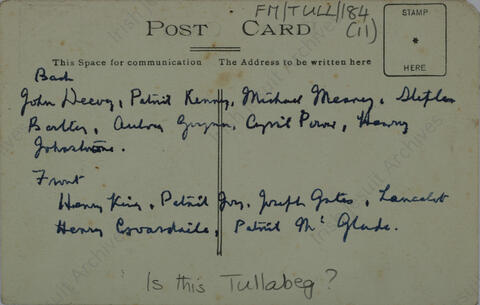 FM/TULL/184
(11)
POST CARD
STAMP
*
HERE
This Space for communication
The Address to be written here
Back
John Deevy, Patrick Kenny, Michael Meaney, Stephen
Bartley, Aubrey Gwynn, Cyril Power, Henry
Johnstone.
Front
Henry King, Patrick Joy, Joseph Gates, Lancelot
Henry Patrick McGlade.
Is this Tullabeg?
Irish Jesuit Archives